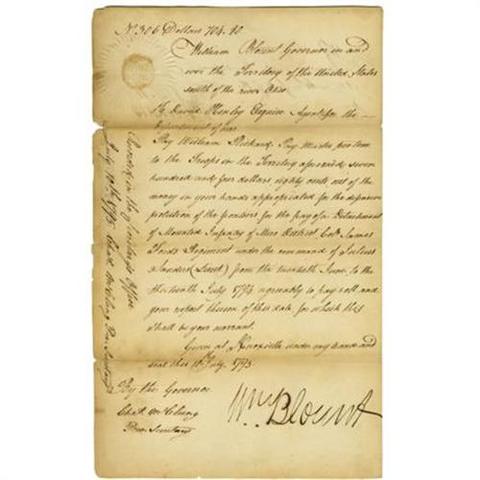 No 306 Dollars 704.80
William Blount Governor in and
over the Territory of the United States
south of the river Ohio
To David Henley Esquire Agent for the
department of war
Pay William Rickard Pay Master pro tem
to the Troops in the Territory aforesaid seven
hundred and four dollars eighty cents out of the
money in your hands appropriated for the defensive
protection of the frontiers for the pay of a Detachment
of Mounted Infantry of Mero District Colo James
Fords Regiment under the command of Julius
Sanders (Lieut) from the twentieth June, to the
thirteenth July 1795 agreeably to pay roll and
your report thereon of this date for which this
shall be your warrant.
Given at Knoxville under my hand and
seal this July, 1795.
Wm Blount
By the Governor
Chas. McClung
Pro. Secretary
Recorded in the Secretary's Office
July 1795 Chas. McClung Pro. Secretary